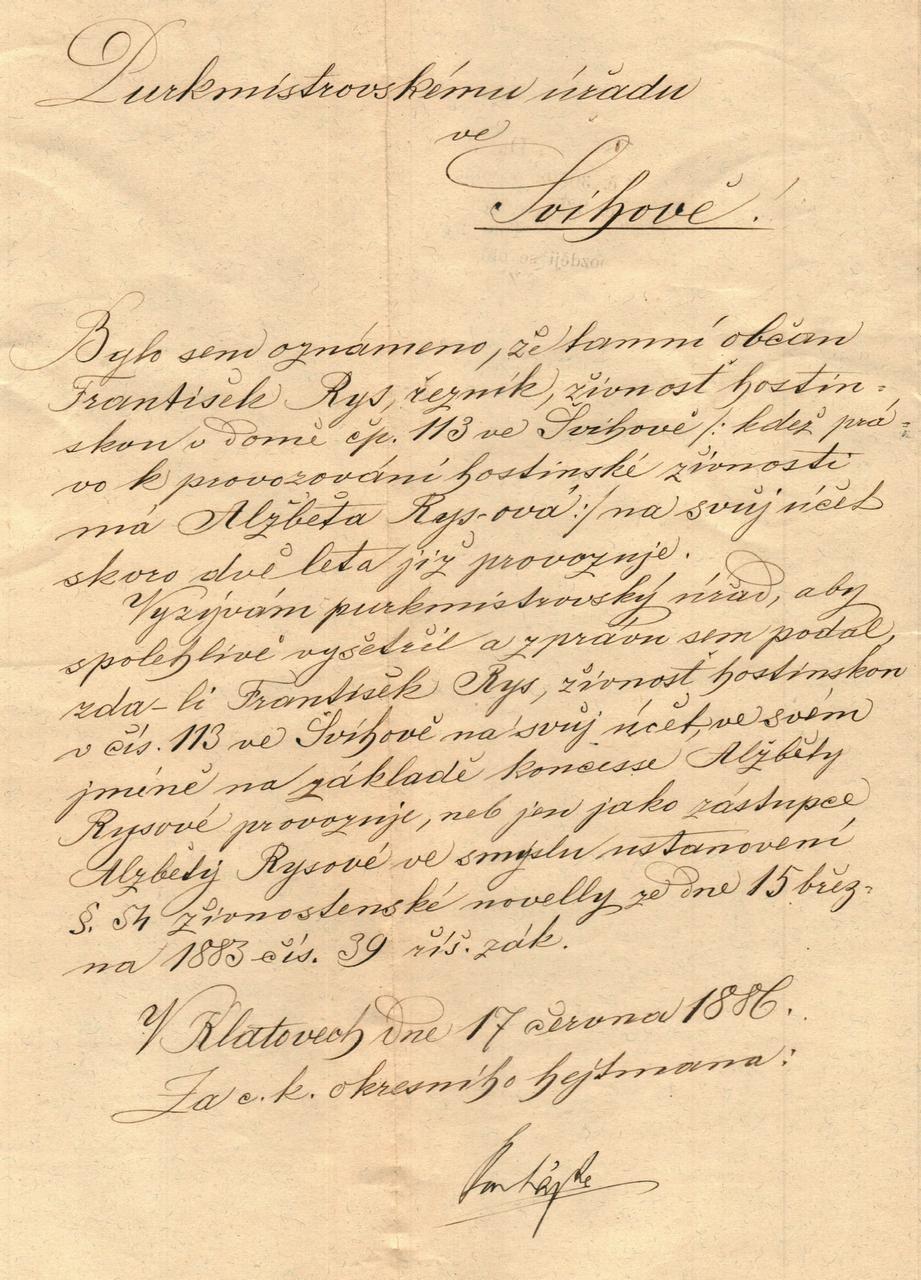 Purkmistrovskému úřadu
ve
Švihově!
Bylo sem oznámeno, že tamní občan
František Rys, řezník, živnosť hostin-
skou v domě čp. 113 ve Švihově /: kdež prá-
vo k provozování hostinské živnosti
má Alžběta Rys-ová :/ na svůj účet
skoro dvě leta již provozuje.
Vyzývám purkmistrovský úřad, aby
spolehlivě vyšetřil a zprávu sem podal,
zda-li František Rys, živnosť hostinskou
v čís. 113 ve Švihově na svůj účet, ve svém
jméně na základě koncesse Alžběty
Rysové provozuje, neb jen jako zástupce
Alžběty Rysové ve smyslu ustanovení
§. 54 živnostenské novelly ze dne 15 břez-
na 1883 čís. 39 říš. zák.
V Klatovech dne 17 června 1886.
Za c. k. okresního hejtmana:
později se